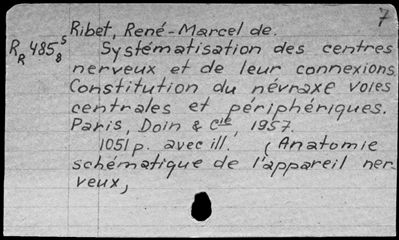 7
Ribet, René-Marcel de.
RR 485 S8 Systématisation des centres
nerveux et de leur connexions
Constitution du névraxe voies
centrales et périphériques.
Paris, Doin & Cie, 1957.
1051 p. avec ill. (Anatomie
schématique de l'appareil ner-
veux,